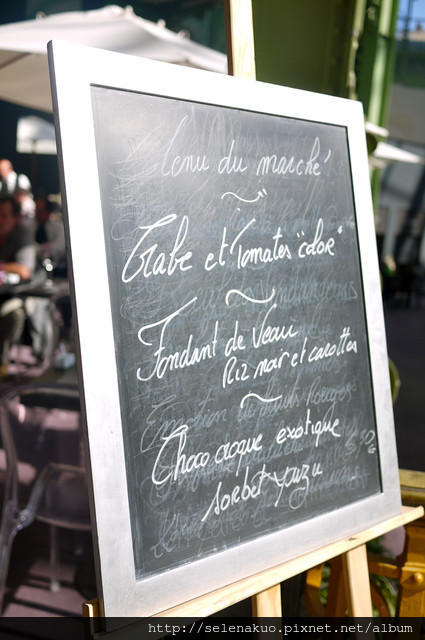 Menu du marché
Crabe et Tomates "color"
Fondant de Veau
Riz noir et carottes
Choco craque exotique
sorbet yuzu
http://selenakuo.pixnet.net/album